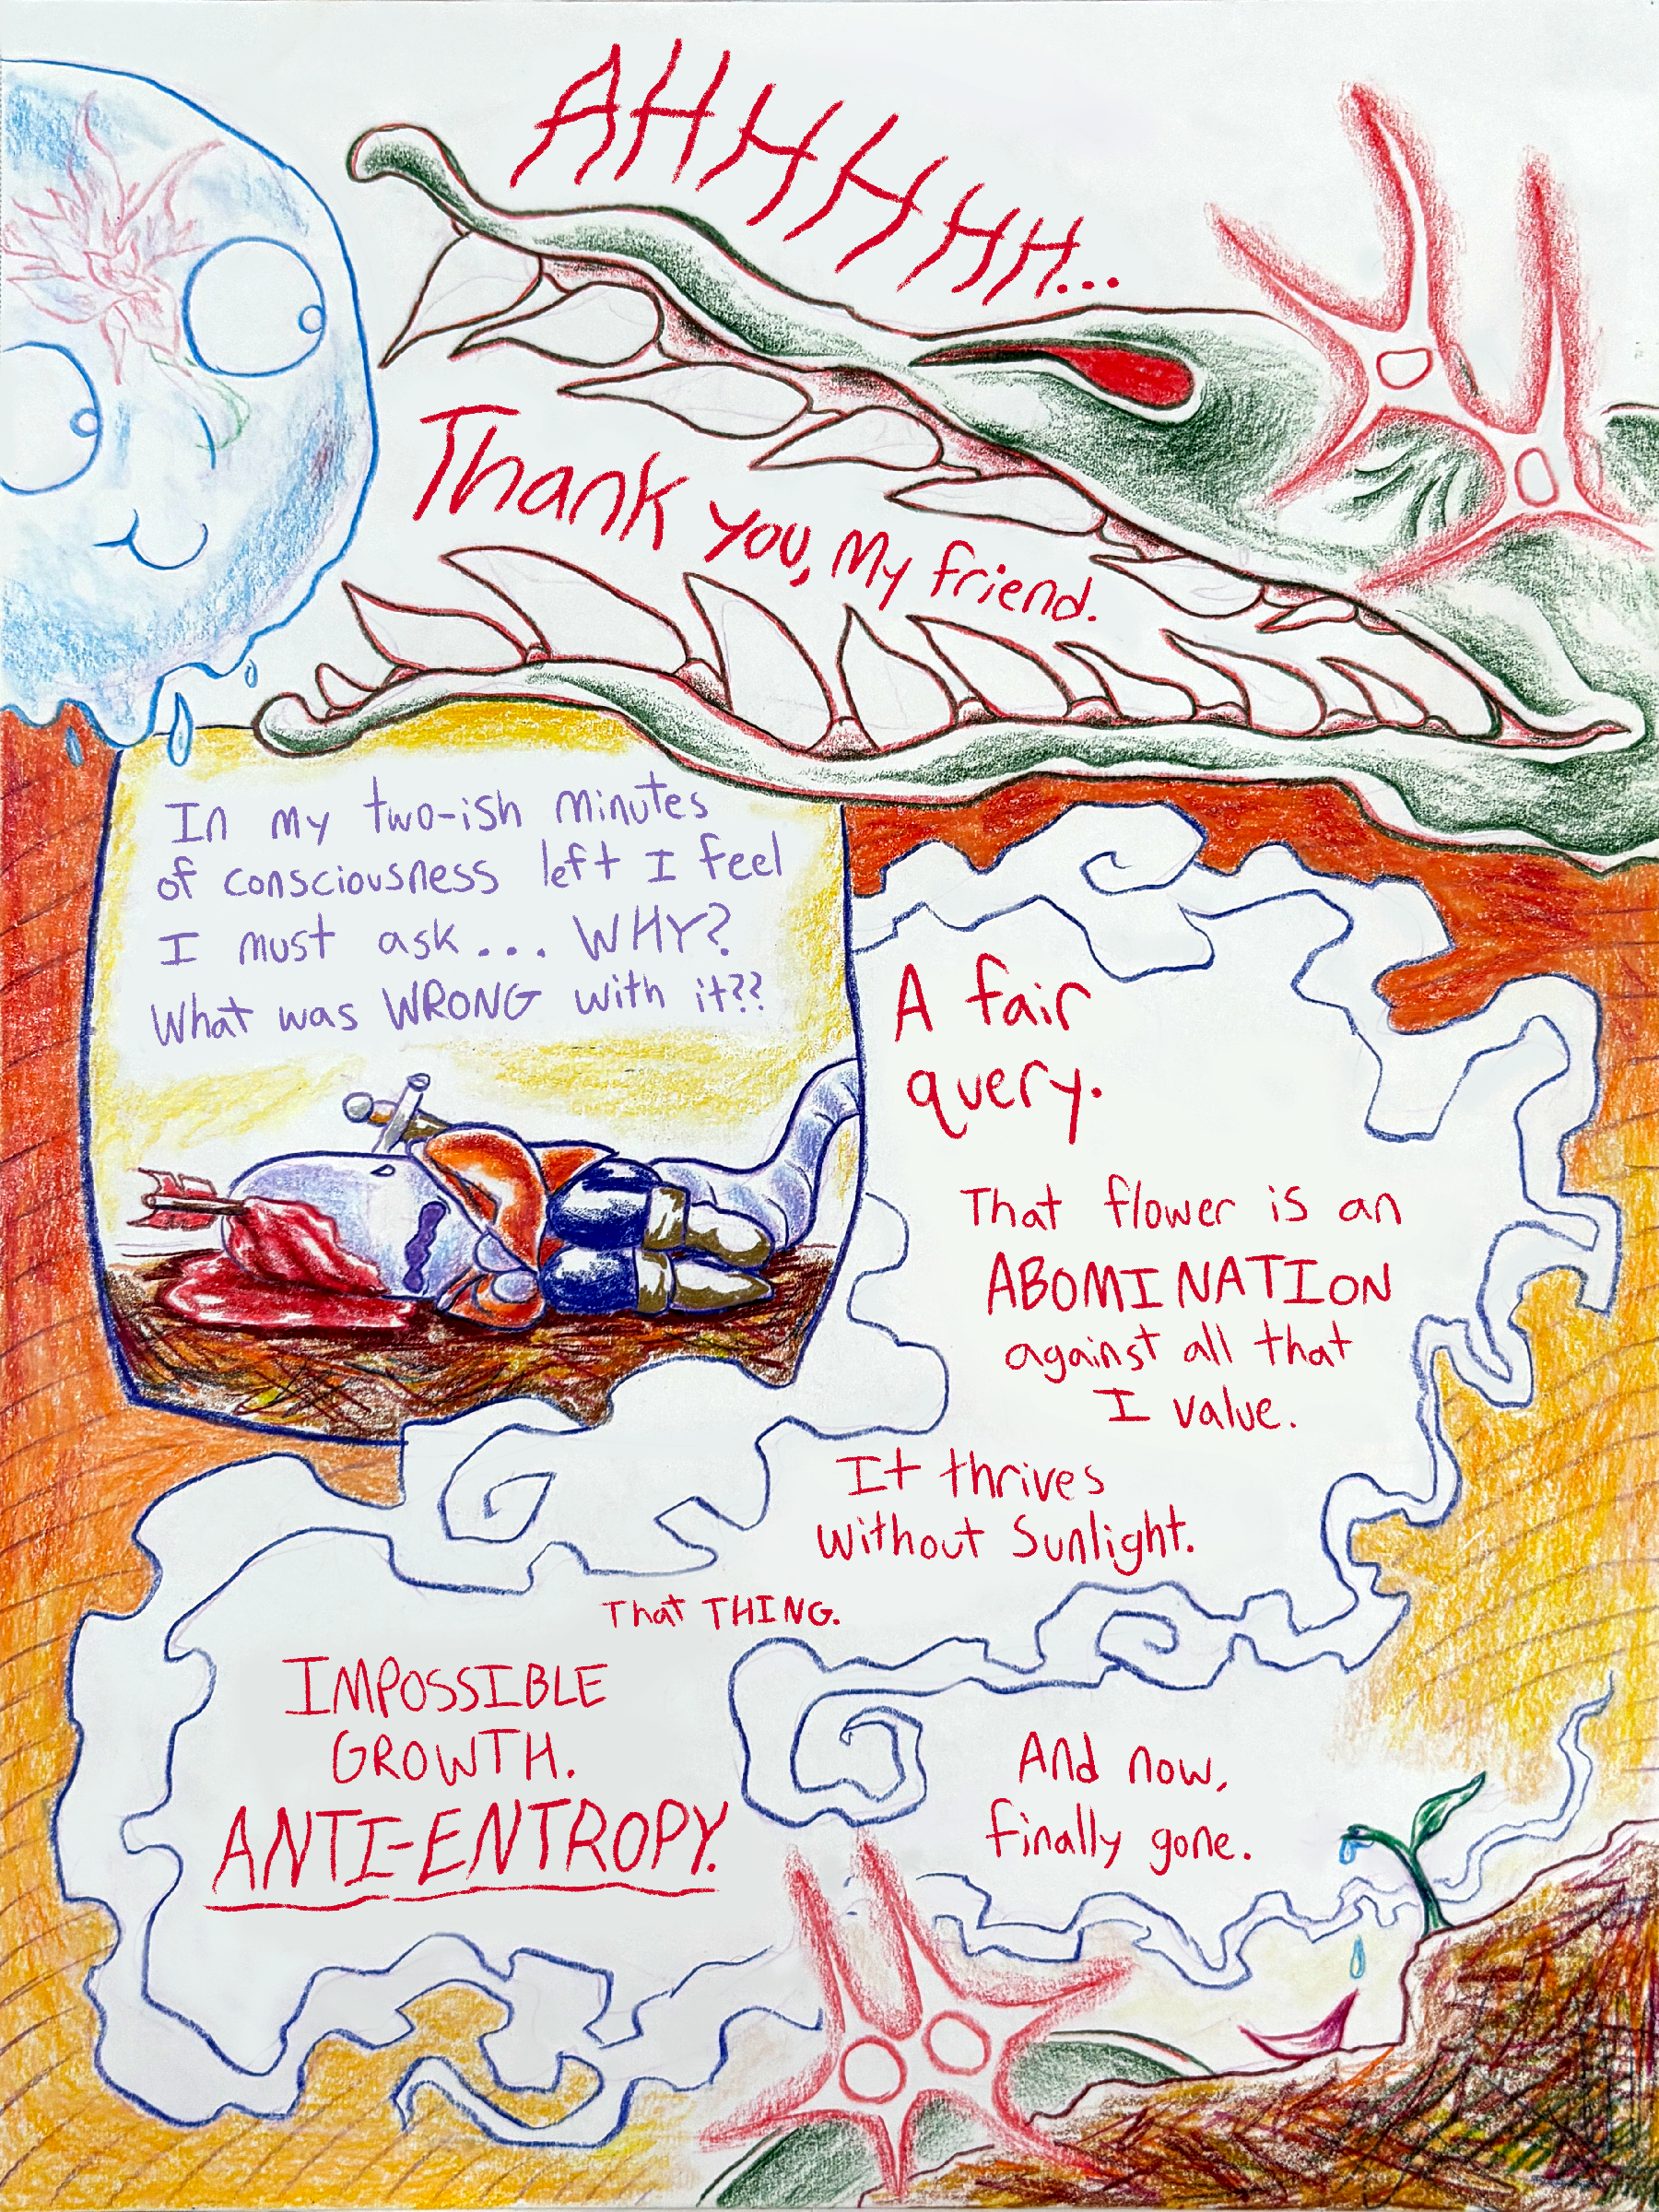 AHHHHHH...
Thank you, My friend.
In my two-ish minutes
of consciousness left I feel
I must ask... WHY?
What was WRONG with it??
A fair
query.
That flower is an
ABOMINATION
against all that
I value.
It thrives
without Sunlight.
That THING.
IMPOSSIBLE
GROWTH.
ANTI-ENTROPY.
And now,
finally gone.